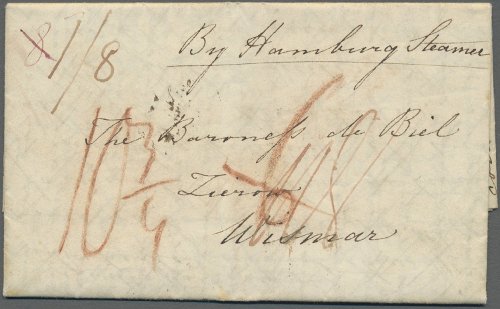 8 1/8
By Hamburg Steamer
The Baroness de Biel
Zierow
Wismar
10 3/4